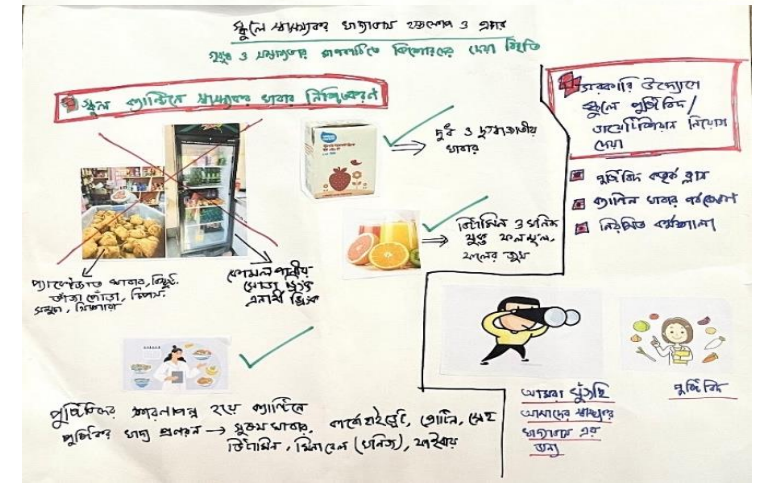 স্কুলে স্বাস্থ্যকর খাদ্যাভ্যাস ও
সুস্থ ও কিশোরদের দেয়া বিবৃতি
স্কুল ক্যান্টিনে স্বাস্থ্যকর খাবার নিশ্চিতকরণ
দুধ ও দুগ্ধজাতীয়
খাবার
ভিটামিন ও খনিজ
যুক্ত ফলমূল,
ফলের জুস
প্যাকেটজাত খাবার, বিস্কুট,
ভাজা পোড়া, চিপস,
সমুচা, সিঙ্গারা
কোমল পানীয়
সোডা যুক্ত
এনার্জি ড্রিংক
পুষ্টিবিদের শরণাপন্ন হয়ে ক্যান্টিনে
পুষ্টিকর খাদ্য প্রণয়ন → সুষম খাবার, কার্বোহাইড্রেট, প্রোটিন, স্নেহ
ভিটামিন, মিনারেল (খনিজ), ফাইবার
সরকারি উদ্যোগে
স্কুলে পুষ্টিবিদ/
ডায়েটিশিয়ান নিয়োগ
দেয়া
পুষ্টিবিদ কর্তৃক ক্লাস
ক্যান্টিন খাবার পর্যবেক্ষণ
নিয়মিত কর্মশালা
আমরা খুঁজছি
আমাদের স্বাস্থ্যকর
খাদ্যাভ্যাস এর
জন্য
পুষ্টিবিদ